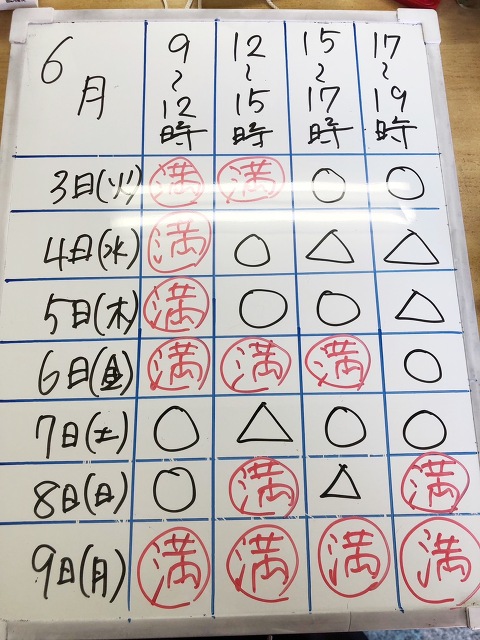 6月 9~12時 12~15時 15~17時 17~19時
3日(火) 満 満 ○ ○
4日(水) 満 ○ △ △
5日(木) 満 ○ ○ △
6日(金) 満 満 満 ○
7日(土) ○ △ ○ ○
8日(日) ○ 満 △ 満
9日(月) 満 満 満 満